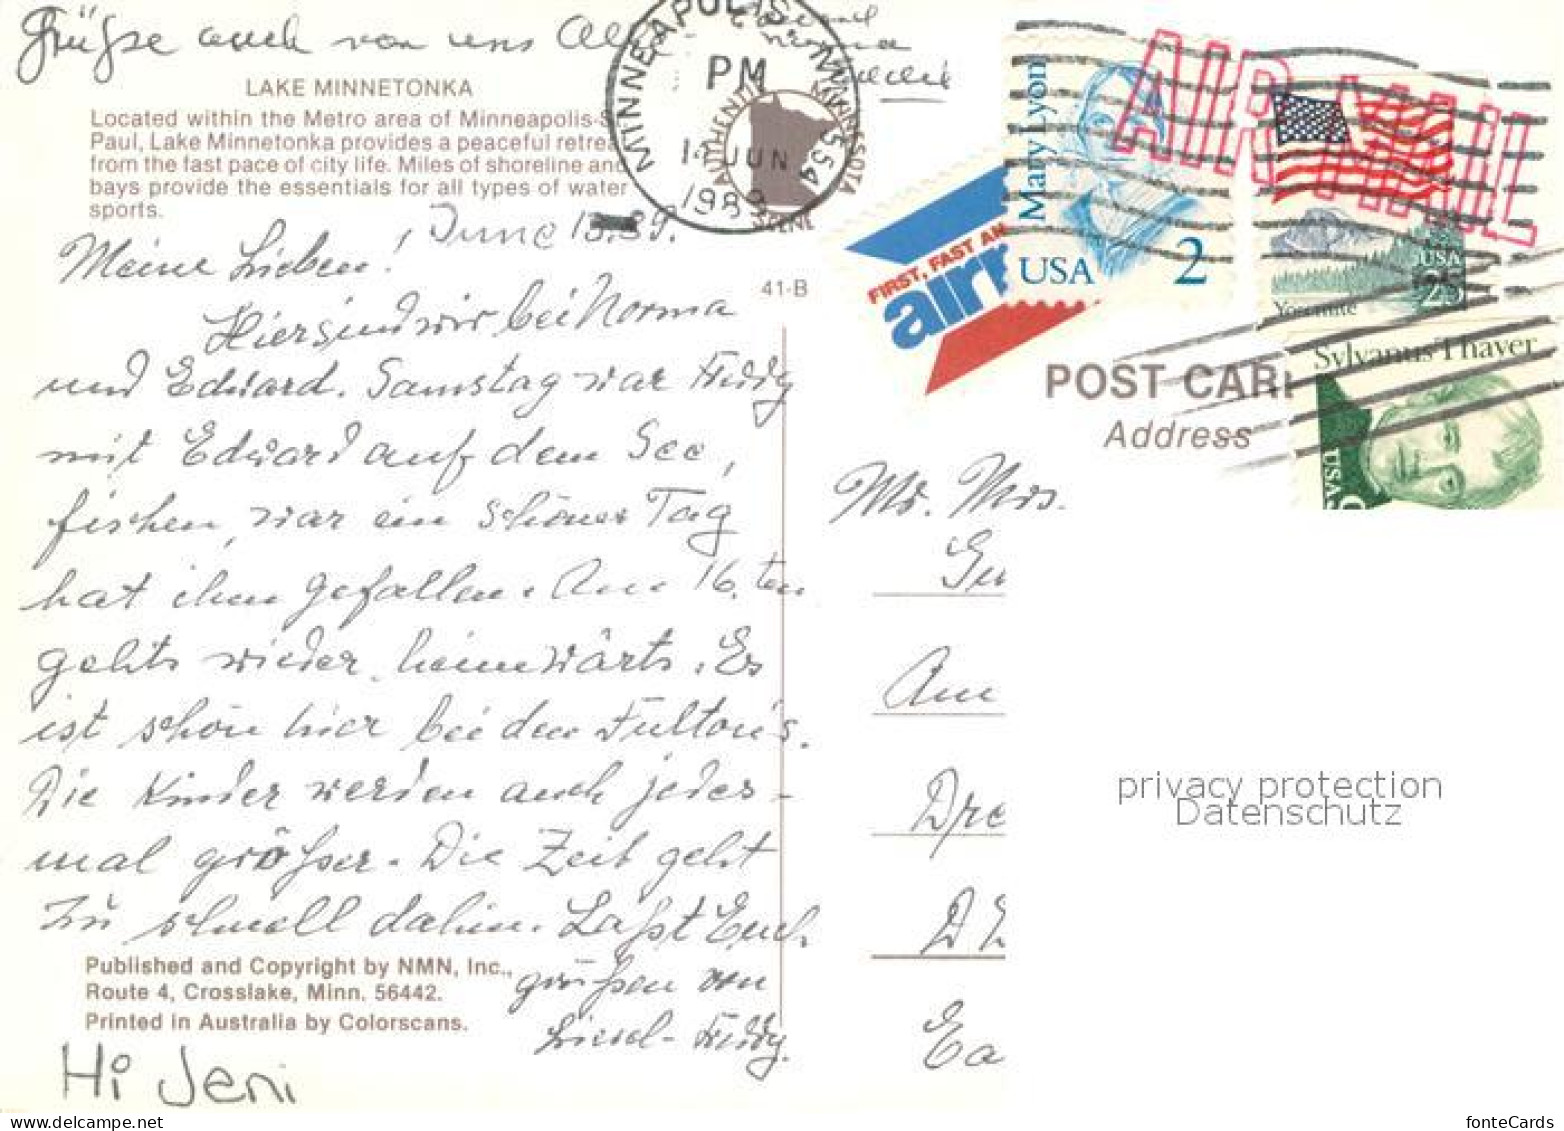 Grüße auch von uns
LAKE MINNETONKA
Located within the Metro area of Minneapolis-S
Paul, Lake Minnetonka provides a peaceful retrea
from the fast pace of city life. Miles of shoreline and
bays provide the essentials for all types of water
sports.
MINNEAPOLIS
PM
JUN
1989
554
AUTHENTIC MINNESOTA SCENE
June 13.89.
Meine Lieben!
Hier sind wir bei Norma
und Edward. Samstag war Friddy
mit Edward auf dem See,
fischen, war ein schöner Tag
hat ihm gefallen. Am 16. ten
gehts wieder heimwärts. Es
ist schön hier bei den Fulton's.
Die Kinder werden auch jedes-
mal größer. Die Zeit geht
zu schnell dahin. Laßt Euch
grüßen von
Liesel - Friddy.
Published and Copyright by NMN, Inc.,
Route 4, Crosslake, Minn. 56442.
Printed in Australia by Colorscans.
Hi Jeni
41-B
FIRST, FAST AN
airm
Mary Lyon
USA 2
AIR MAIL
USA
25
Yosemite
Sylvanus Thayer
USA 9
POST CAR
Address
Mr. Mrs.
Gu
Am
Dre
D
Ea
privacy protection
Datenschutz
delcampe.net
fonteCards